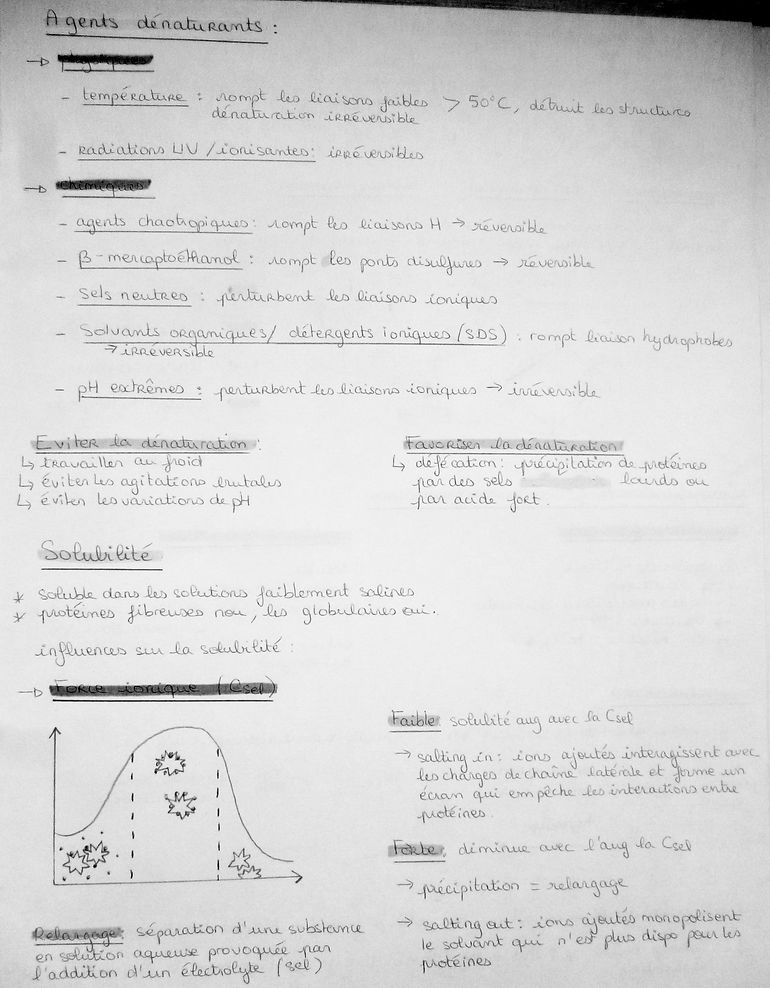 Agents dénaturants :
→ physiques
- température : rompt les liaisons faibles > 50°C, détruit les structures
dénaturation irréversible
- Radiations UV / ionisantes : irréversibles
→ chimiques
- agents chaotropiques : rompt les liaisons H → réversible
- β-mercaptoéthanol : rompt les ponts disulfures → réversible
- Sels neutres : perturbent les liaisons ioniques
- Solvants organiques / détergents ioniques (SDS) : rompt liaison hydrophobes
→ irréversible
- pH extrêmes : perturbent les liaisons ioniques → irréversible
Eviter la dénaturation :
↳ travailler au froid
↳ éviter les agitations brutales
↳ éviter les variations de pH
Favoriser la dénaturation
↳ défécation : précipitation de protéines
par des sels lourds ou
par acide fort.
Solubilité
* soluble dans les solutions faiblement salines
* protéines fibreuses non, les globulaires oui.
influences sur la solubilité :
→ Force ionique (Csel)
Faible solulité aug avec la Csel
→ salting in : ions ajoutés interagissent avec
les charges de chaîne latérale et forme un
écran qui empêche les interactions entre
protéines.
Forte, diminue avec l'aug la Csel
→ précipitation = relargage
→ salting out : ions ajoutés monopolisent
le solvant qui n'est plus dispo pour les
protéines
Relargage : séparation d'une substance
en solution aqueuse provoquée par
l'addition d'un électrolyte (sel)